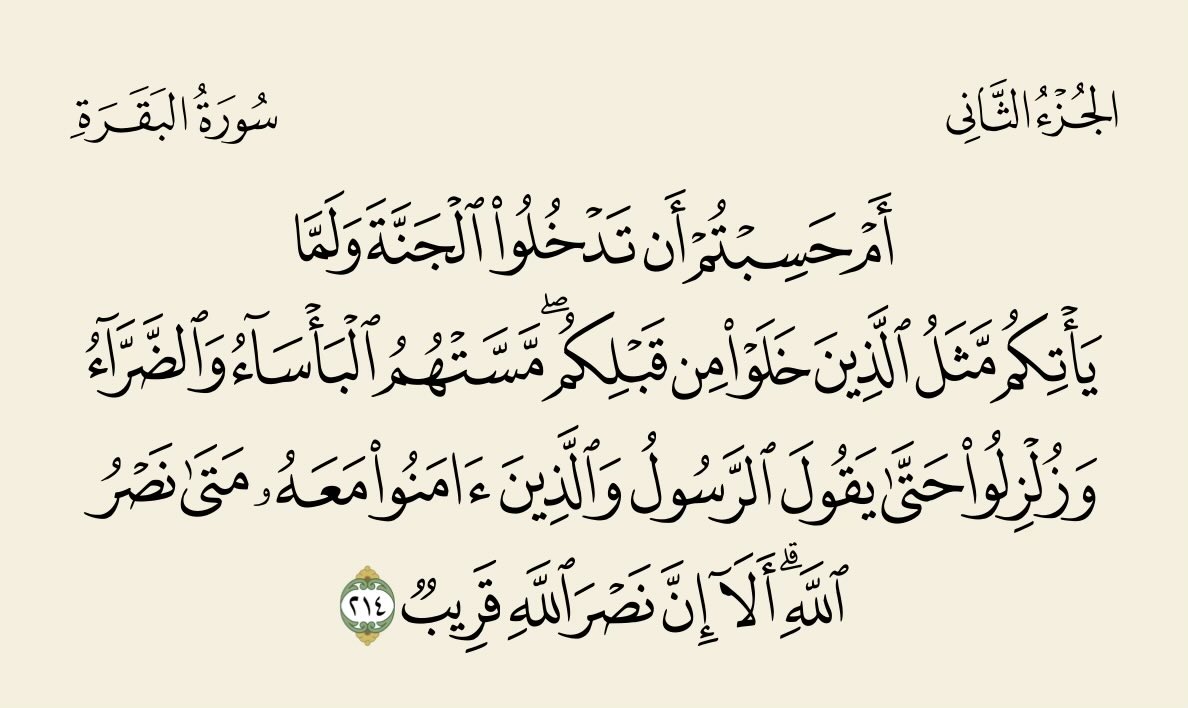 الجُزْءُ الثَّانِى
سُورَةُ البَقَرَةِ
أَمۡ حَسِبۡتُمۡ أَن تَدۡخُلُواْ ٱلۡجَنَّةَ وَلَمَّا
يَأۡتِكُم مَّثَلُ ٱلَّذِينَ خَلَوۡاْ مِن قَبۡلِكُمۖ مَّسَّتۡهُمُ ٱلۡبَأۡسَآءُ وَٱلضَّرَّآءُ
وَزُلۡزِلُواْ حَتَّىٰ يَقُولَ ٱلرَّسُولُ وَٱلَّذِينَ ءَامَنُواْ مَعَهُۥ مَتَىٰ نَصۡرُ
ٱللَّهِۗ أَلَآ إِنَّ نَصۡرَ ٱللَّهِ قَرِيبٞ ٢١٤